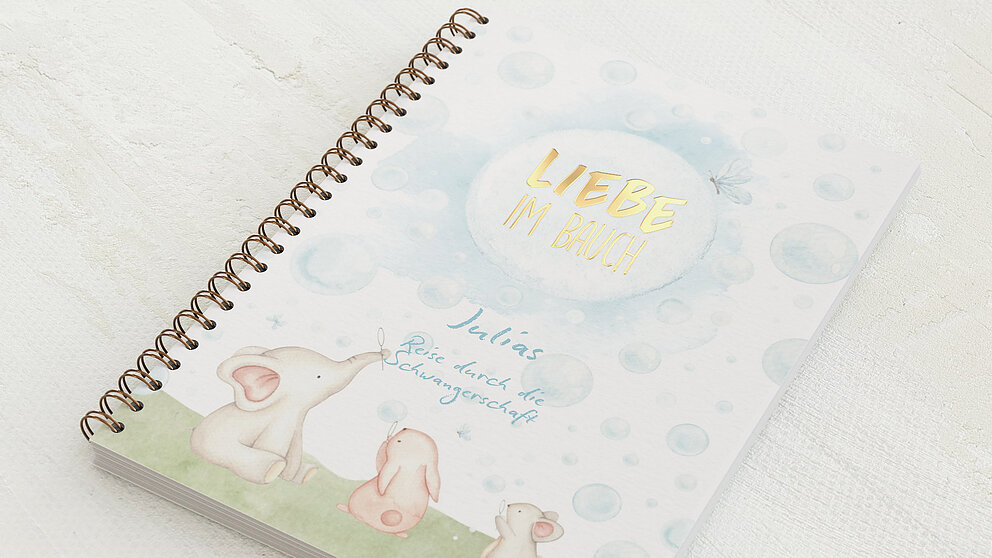 LIEBE
IM BAUCH
Julias
Reise durch die
Schwangerschaft